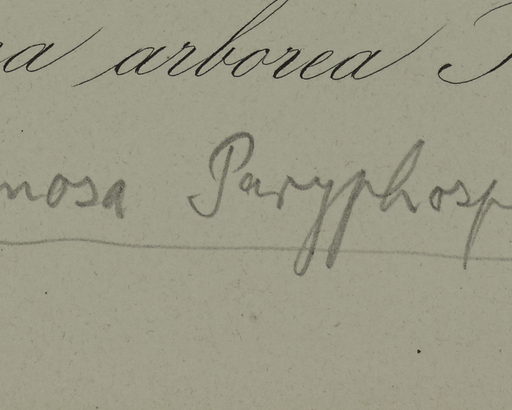 a arborea
nosa Paryphosp